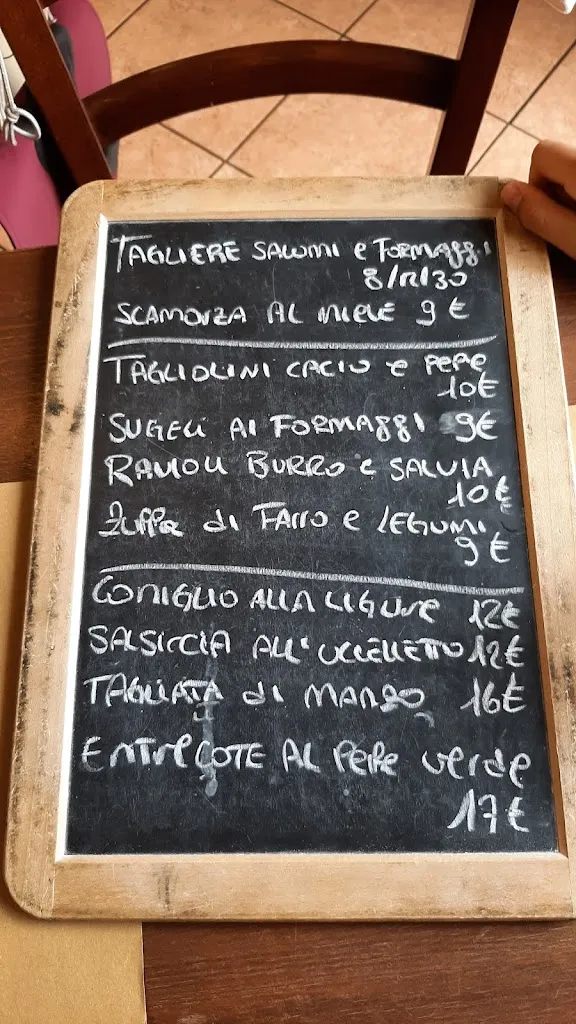 TAGLIERE SALUMI e FORMAGGI
8/12/30
SCAMORZA AL MIELE 9 €
TAGLIOLINI CACIO e PEPE
10€
SUGELI AI FORMAGGI 9€
RAVIOLI BURRO e SALVIA
10€
Zuppa di FARRO e LEGUMI
9€
CONIGLIO ALLA LIGURE 12€
SALSICCIA ALL'UCCELLETTO 12€
TAGLIATA di MANZO 16€
ENTRECOTE AL PEPE verde
17€